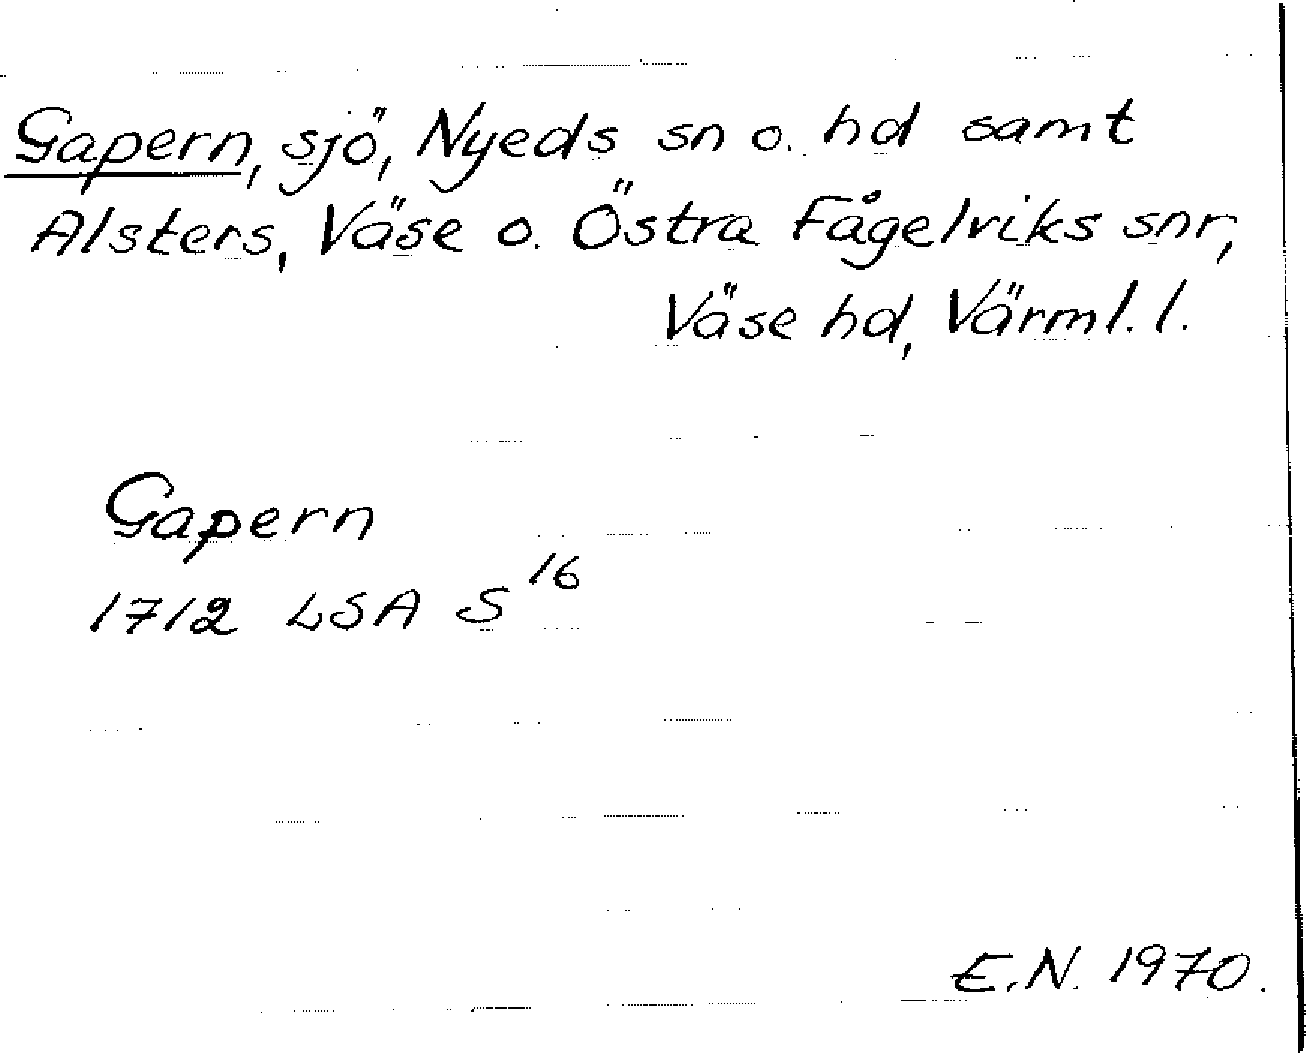 Gapern, sjö, Nyeds sn o. hd samt
Alsters, Väse o. Östra Fågelviks snr,
Väse hd, Värml. l.
Gapern
1712 LSA S 16
E.N. 1970.